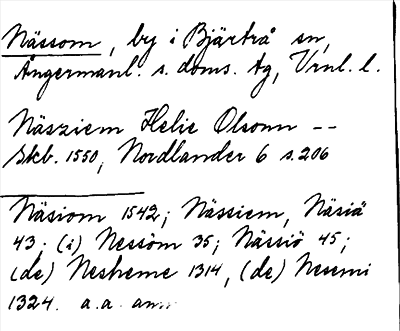 Nässom, by i Bjärtrå sn,
Ångermanl. s. doms. tg, Vrnl. l.
Näsziem Helie Olsonn --
Skb. 1550, Nordlander 6 s. 206
Näsiom 1542; Nässiem, Näsiä
43; (i) Nessöm 35; Nässiö 45;
(de) Nesheme 1314, (de) Nesemi
1324. a.a.